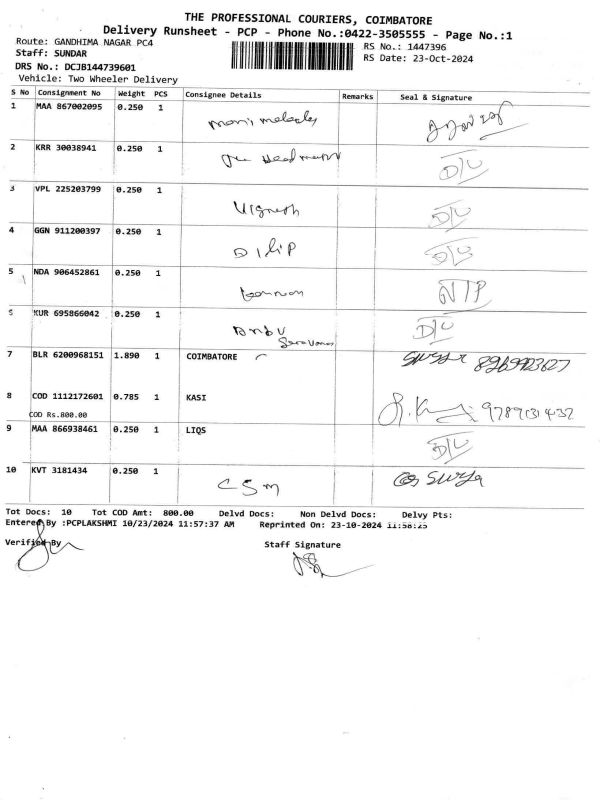 THE PROFESSIONAL COURIERS, COIMBATORE
Delivery Runsheet - PCP - Phone No.:0422-3505555 - Page No.:1
Route: GANDHIMA NAGAR PC4
RS No.: 1447396
Staff: SUNDAR
RS Date: 23-Oct-2024
DRS No.: DCJB144739601
Vehicle: Two Wheeler Delivery
S No Consignment No Weight PCS Consignee Details Remarks Seal & Signature
1 MAA 867002095 0.250 1
2 KRR 30038941 0.250 1 D/C
3 VPL 225203799 0.250 1 Vignesh D/C
4 GGN 911200397 0.250 1 DiliP D/C
5 NDA 906452861 0.250 1 NTP
6 KUR 695866042 0.250 1 Anbu D/C
7 BLR 6200968151 1.890 1 COIMBATORE
8 COD 1112172601 0.785 1 KASI
COD Rs.800.00
9 MAA 866938461 0.250 1 LIQS D/C
10 KVT 3181434 0.250 1 CSM Surya
Tot Docs: 10 Tot COD Amt: 800.00 Delvd Docs: Non Delvd Docs: Delvy Pts:
Entered By :PCPLAKSHMI 10/23/2024 11:57:37 AM Reprinted On: 23-10-2024 11:58:25
Verified By Staff Signature